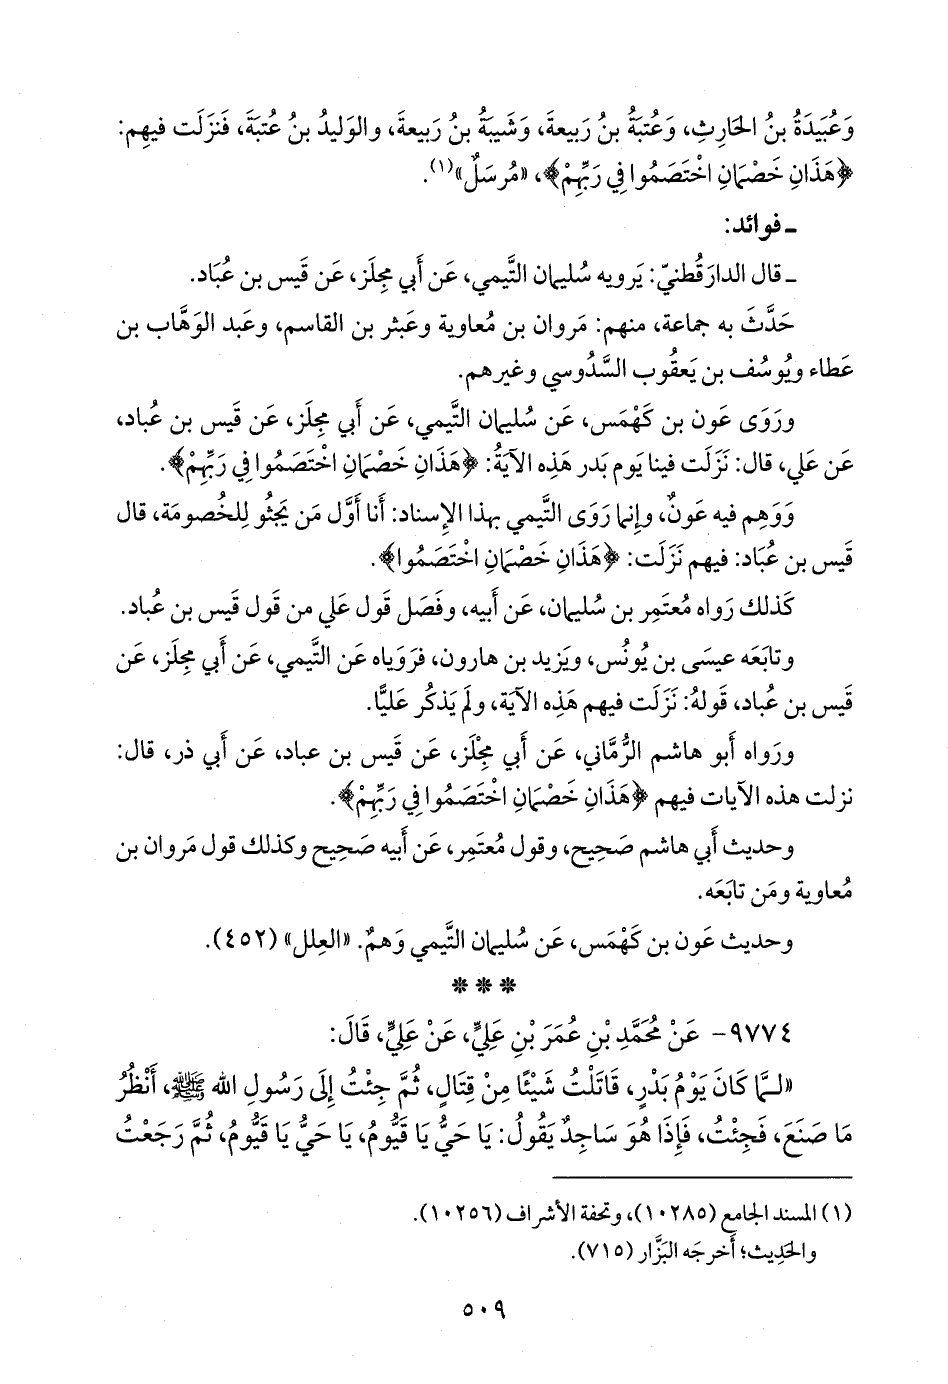 وَعُبَيدَةُ بنُ الحَارِثِ، وَعُتبَةُ بنُ رَبيعةَ، وَشَيبَةُ بنُ رَبيعةَ، والوَليدُ بنُ عُتبَةَ، فَنزَلَت فيهِم:
﴿هَذَانِ خَصْمَانِ اخْتَصَمُوا فِي رَبِّهِمْ﴾، «مُرسَلٌ»(١).
ـ فوائد:
ـ قال الدارَقُطنيّ: يَرويه سُليمان التَّيمي، عَن أَبي مِجلَز، عَن قَيس بن عُبَاد.
حَدَّثَ به جماعة، منهم: مَروان بن مُعاوية وعَبثر بن القاسم، وعَبد الوَهَّاب بن
عَطاء ويُوسُف بن يَعقُوب السَّدُوسي وغيرهم.
ورَوَى عَون بن كَهْمَس، عَن سُليمان التَّيمي، عَن أَبي مِجلَز، عَن قَيس بن عُباد،
عَن عَلي، قال: نَزَلَت فينا يَوم بَدر هَذِه الآيَةُ: ﴿هَذَانِ خَصْمَانِ اخْتَصَمُوا فِي رَبِّهِمْ﴾.
وَوَهِم فيه عَونٌ، وإنما رَوَى التَّيمي بهذا الإِسناد: أَنا أَوَّل مَن يَجثُو لِلخُصومَة، قال
قَيس بن عُبَاد: فيهم نَزَلَت: ﴿هَذَانِ خَصْمَانِ اخْتَصَمُوا﴾.
كَذلك رَواه مُعتَمِر بن سُليمان، عَن أَبيه، وفصَل قَول عَلي من قَول قَيس بن عُباد.
وتابَعَه عيسَى بن يُونُس، ويَزيد بن هارون، فرَوَياه عَن التَّيمي، عَن أَبي مِجلَز، عَن
قَيس بن عُباد، قَولهُ: نَزَلَت فيهم هَذِه الآيَة، ولَم يَذكُر عَليًّا.
ورَواه أَبو هاشم الرُّماني، عَن أَبي مِجْلَز، عَن قَيس بن عباد، عَن أَبي ذر، قال:
نزلت هذه الآيات فيهم ﴿هَذَانِ خَصْمَانِ اخْتَصَمُوا فِي رَبِّهِمْ﴾.
وحديث أَبي هاشم صَحِيح، وقول مُعتَمِر، عَن أَبيه صَحِيح وكذلك قول مَروان بن
مُعاوية ومَن تابَعَه.
وحديث عَون بن كَهْمَس، عَن سُليمان التَّيمي وَهمٌ. «العِلل» (٤٥٢).
* * *
٩٧٧٤- عَنْ مُحَمَّدِ بْنِ عُمَرَ بْنِ عَلِيٍّ، عَنْ عَلِيٍّ، قَالَ:
«لَـمَّا كَانَ يَوْمُ بَدْرٍ، قَاتَلْتُ شَيْئًا مِنْ قِتَالٍ، ثُمَّ جِئْتُ إِلَى رَسُولِ الله ﷺ، أَنْظُرُ
مَا صَنَعَ، فَجِئْتُ، فَإِذَا هُوَ سَاجِدٌ يَقُولُ: يَا حَيُّ يَا قَيُّومُ، يَا حَيُّ يَا قَيُّومُ، ثُمَّ رَجَعْتُ
(١) المسند الجامع (١٠٢٨٥)، وتحفة الأشراف (١٠٢٥٦).
والحَدِيث؛ أَخرجَه البَزَّار (٧١٥).
٥٠٩